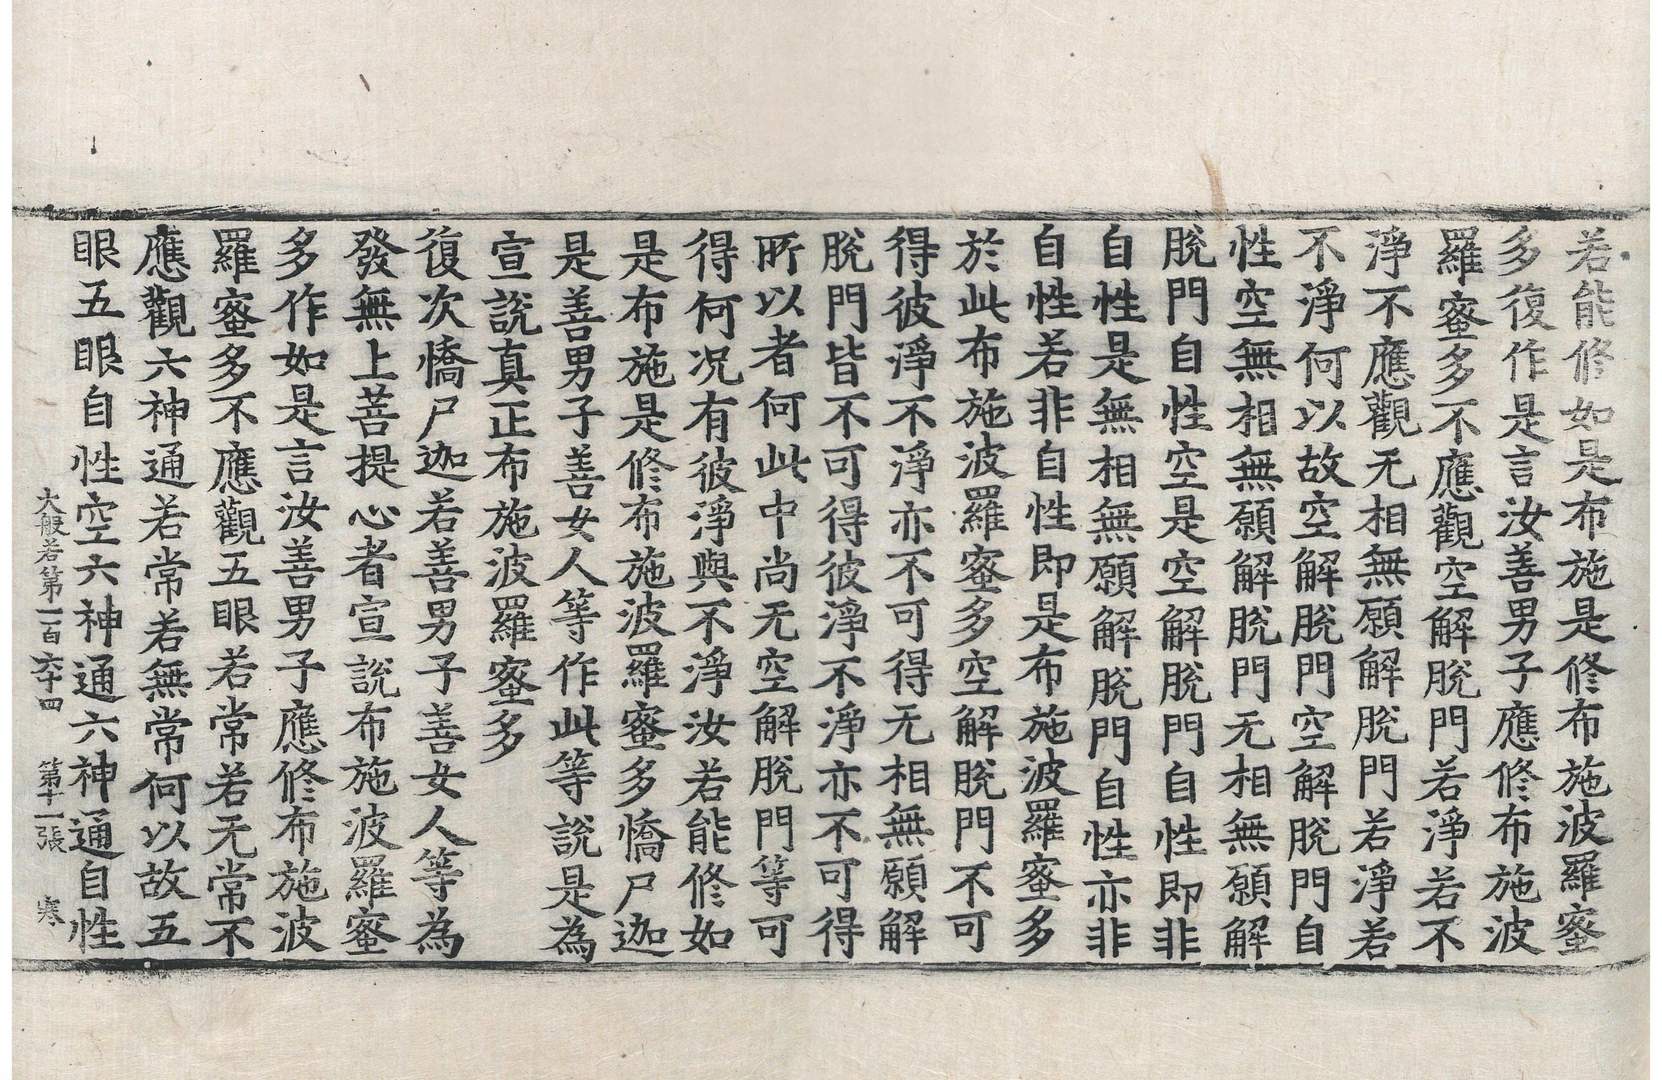 若能修如是布施是修布施波羅蜜
多復作是言汝善男子應修布施波
羅蜜多不應觀空解脫門若淨若不
淨不應觀无相無願解脫門若淨若
不淨何以故空解脫門空解脫門自
性空無相無願解脫門无相無願解
脫門自性空是空解脫門自性即非
自性是無相無願解脫門自性亦非
自性若非自性即是布施波羅蜜多
於此布施波羅蜜多空解脫門不可
得彼淨不淨亦不可得无相無願解
脫門皆不可得彼淨不淨亦不可得
所以者何此中尚无空解脫門等可
得何况有彼淨與不淨汝若能修如
是布施是修布施波羅蜜多憍尸迦
是善男子善女人等作此等說是為
宣說真正布施波羅蜜多
復次憍尸迦若善男子善女人等為
發無上菩提心者宣說布施波羅蜜
多作如是言汝善男子應修布施波
羅蜜多不應觀五眼若常若无常不
應觀六神通若常若無常何以故五
眼五眼自性空六神通六神通自性
大般若第一百六十四 第十一張 寒